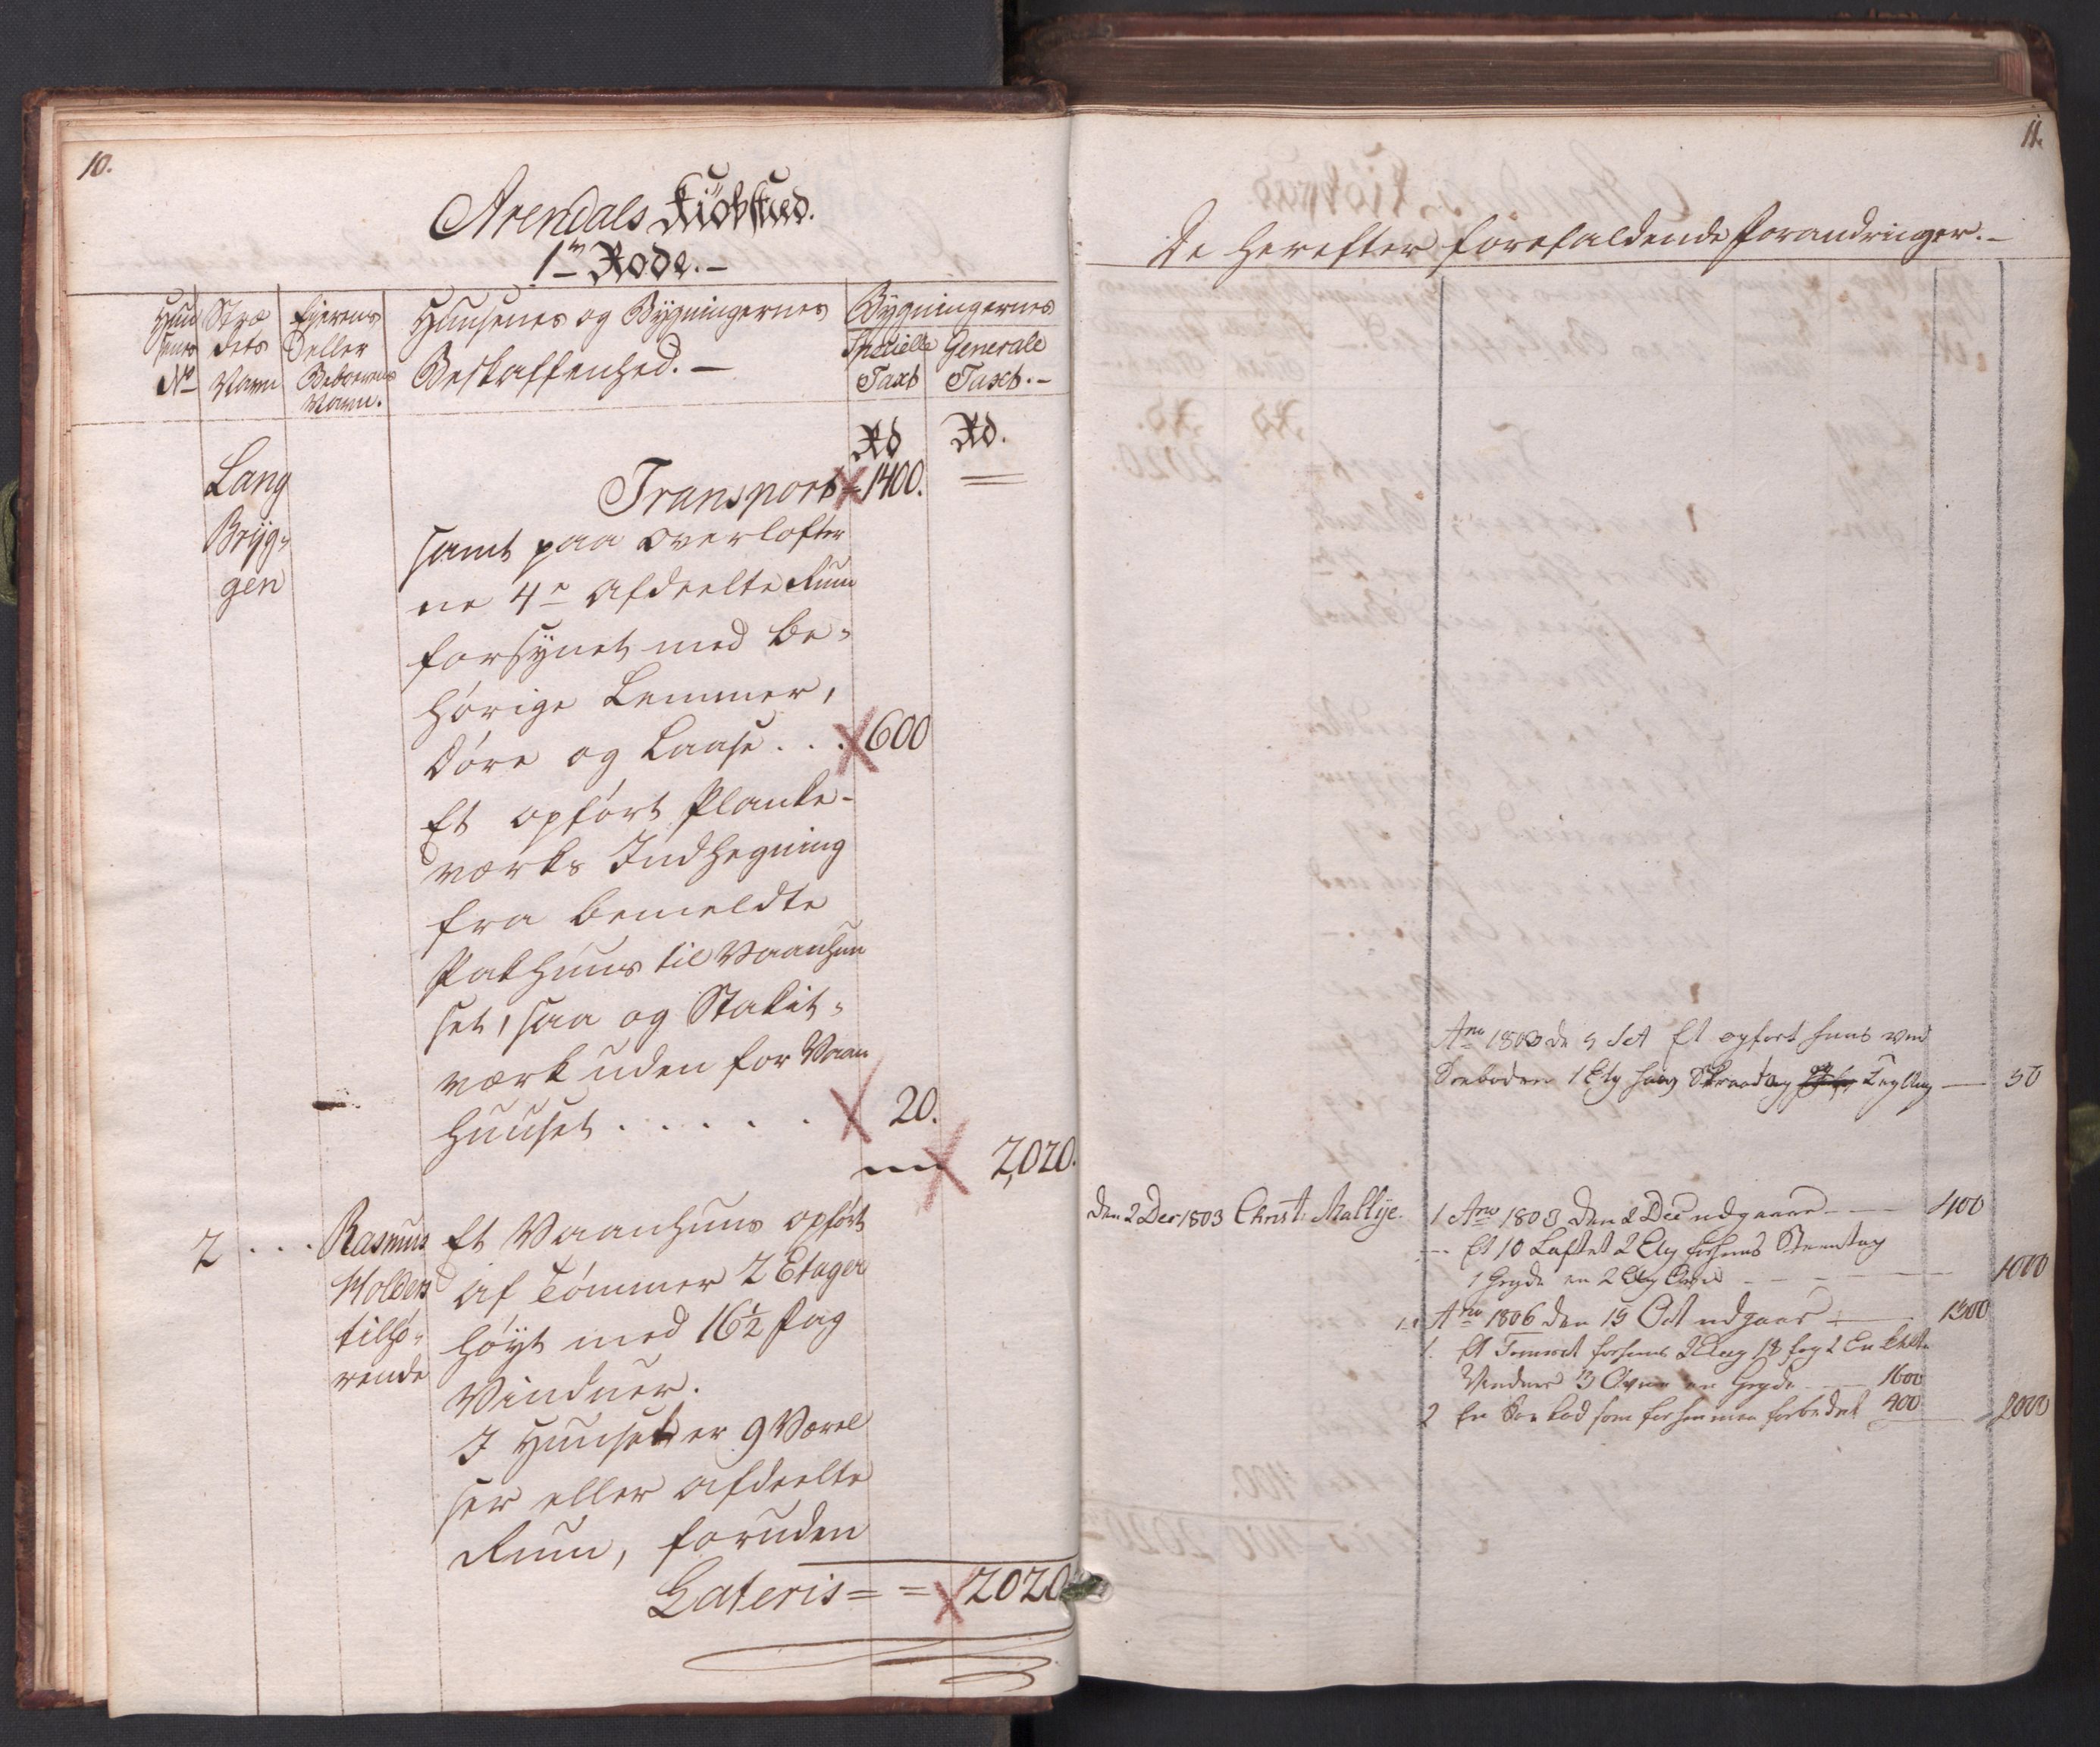 10.
Arendals Kiöbstæd.
1te Rode.-
Huu
senes
No
Stræ
dets
Navn
Ejerens
eller
Beboerens
Navn.
Huusenes og Bygningernes
Beskaffenhed. -
Bygningernes
Specielle Generale
Taxt Taxt.-
Rd Rd.
Lang
Bryg-
gen
Transport = 1400.
samt paa Overlofter
ne 4re Afdeelte Rum
forsynet med be-
hörige Lemmer,
Döre og Laase . . . 600
Et opfört Planke-
værks Indhegning
fra bemeldte
Pakhuus til Vaanhuu
set, saa og Stakit-
værk uden for Vaan
huuset . . . . . 20.
2,020.
2 . . . Rasmus
Molders
tilhö-
rende
Et Vaanhuus opfört
af Tömmer 2 Etager
höyt med 16½ Fag
Vinduer.
I Huuset er 9 Værel
ser eller afdeelte
Rum, foruden
Lateris = = 2020
11.
De herefter forefaldende Forandringer.-
Ano 1803 de 5 Oct Et opfört huus ved
Söeboden 1 Etg og 50
Den 2 Dec 1803 Christ: Mallye.
1 Ano 1803 den 2 Dec udgaaer - - 400
Et 10 Laftet 2 Etg Steentag
1 Gryde en 2 Etg - - - 1000
Ano 1806 den 15 Oct udgaar - 1300
1. Et Tömret 2 Etag 18 fag 2 Enkelte
Vinduer 3 Ovne en Gryde - - 1600
2 En Söe bod som forhen men forbedret 400 2000